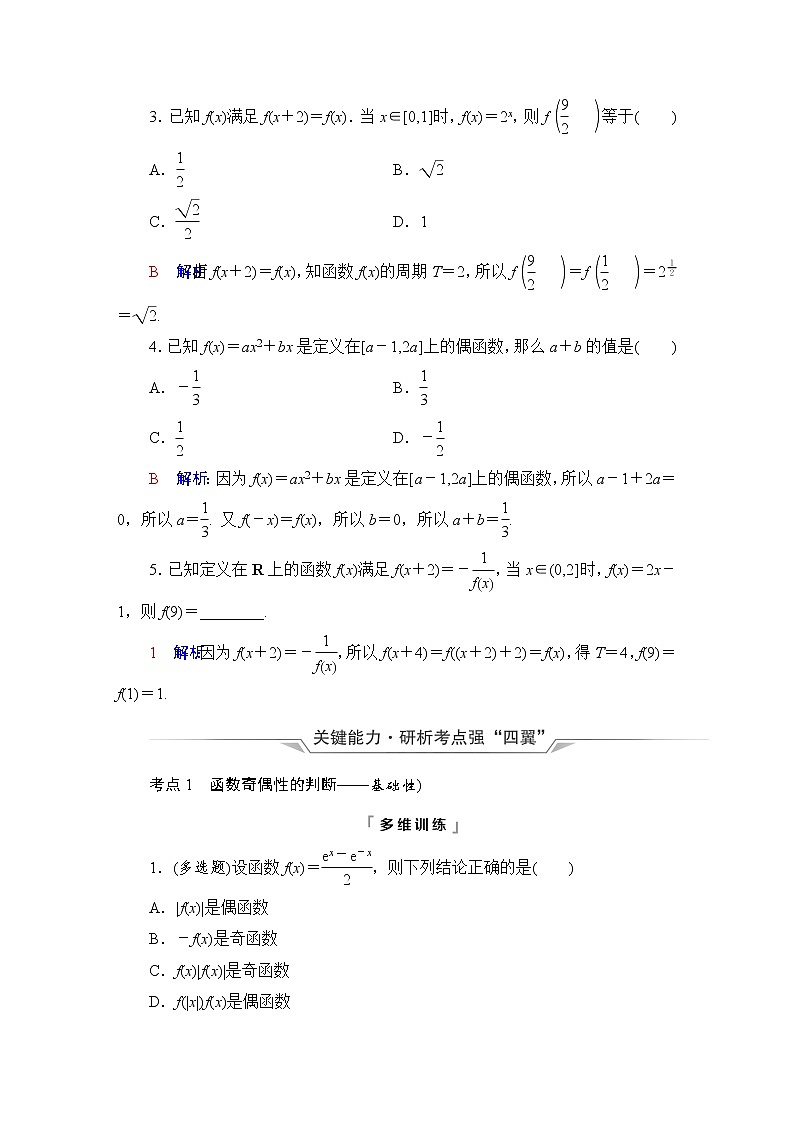 3. 已知 f(x)满足 f(x+2)=f(x). 当 x∈[0,1]时, f(x)=2ˣ, 则 f(9/2)等于(  )
A. 1/2  B. √2
C. √2/2  D. 1
B 解析:由 f(x+2)=f(x), 知函数 f(x)的周期 T=2, 所以 f(9/2)=f(1/2)=2^(1/2)
=√2.
4. 已知 f(x)=ax²+bx 是定义在[a-1,2a]上的偶函数, 那么 a+b 的值是(  )
A. -1/3  B. 1/3
C. 1/2  D. -1/2
B 解析: 因为 f(x)=ax²+bx 是定义在[a-1,2a]上的偶函数, 所以 a-1+2a=
0, 所以 a=1/3. 又 f(-x)=f(x), 所以 b=0, 所以 a+b=1/3.
5. 已知定义在 R 上的函数 f(x)满足 f(x+2)=-1/f(x), 当 x∈(0,2]时, f(x)=2x-
1, 则 f(9)=________.
1 解析:因为 f(x+2)=-1/f(x), 所以 f(x+4)=f((x+2)+2)=f(x), 得 T=4, f(9)=
f(1)=1.
关键能力·研析考点强“四翼”
考点 1 函数奇偶性的判断——基础性)
「多维训练」
1. (多选题)设函数 f(x)=(eˣ-e⁻ˣ)/2, 则下列结论正确的是(  )
A. |f(x)|是偶函数
B. -f(x)是奇函数
C. f(x)|f(x)|是奇函数
D. f(|x|)f(x)是偶函数